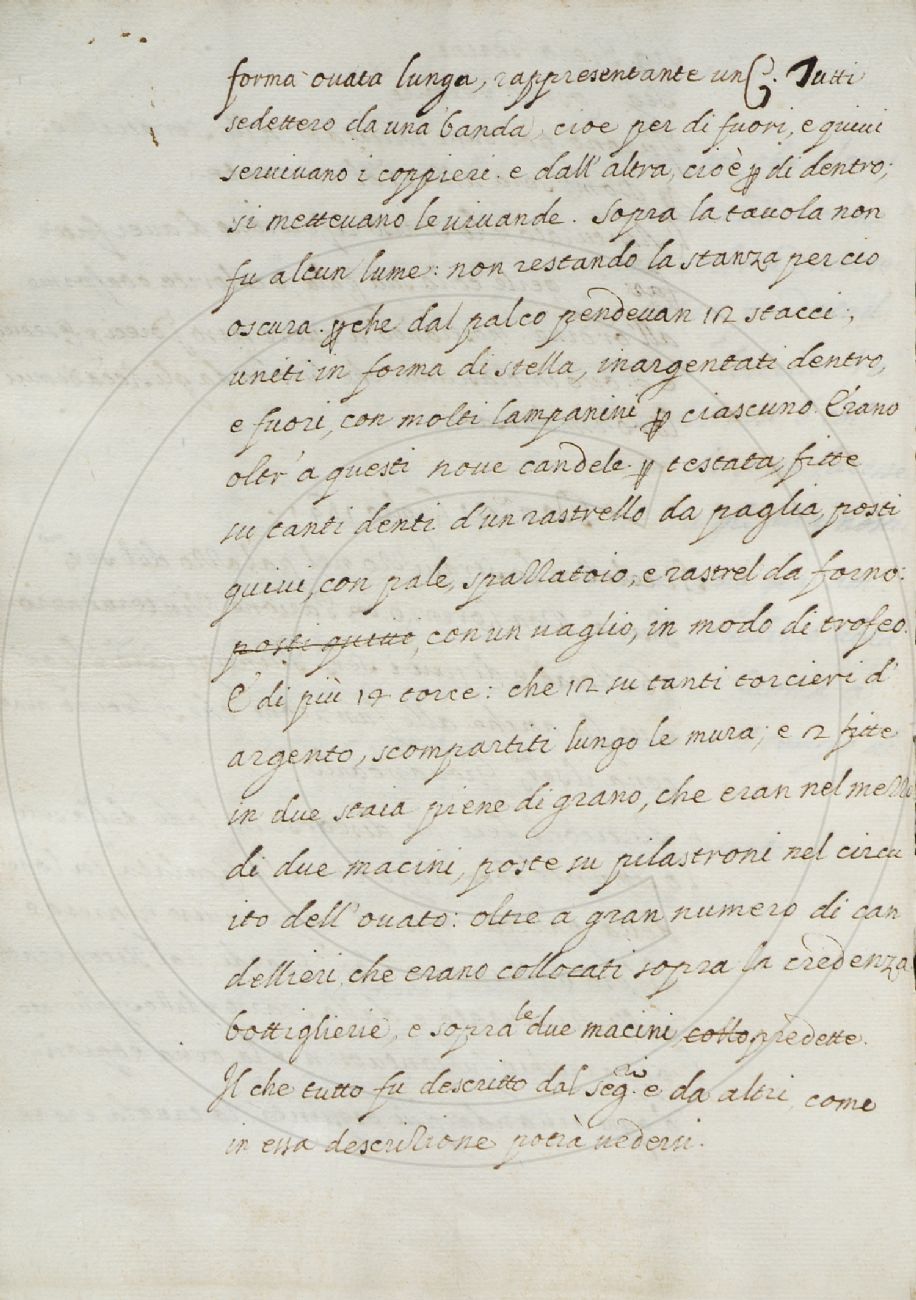 forma ovata lunga, rappresentante un C. Tutti
sedettero da una banda, cioe per di fuori, e quivi
servivano i coppieri. e dall' altra, cioè ꝑ di dentro;
si mettevano le vivande. Sopra la tavola non
fu alcun lume: non restando la stanza per cio
oscura. ꝑche dal palco pendevan 12 stacci,
uniti in forma di stella, inargentati dentro,
e fuori, con molti lampanini ꝑ ciascuno. Erano
oltr' a questi nove candele ꝑ testata, fitte
su tanti denti d'un rastrello da paglia, posti
quivi, con pale, spazzatoio, e rastrel da forno:
posti quivi, con un vaglio, in modo di trofeo.
E di più 14 torce: che 12 su tanti torcieri d'
argento, scompartiti lungo le mura; e 2 fitte
in due staia piene di grano, che eran nel mezzo
di due macini, poste su pilastroni nel circu
ito dell' ovato: oltre a gran numero di can
dellieri, che erano collocati sopra la credenza
bottiglierie, e sopra le due macini sotto predette.
Il che tutto fu descritto dal Seg.rio e da altri, come
in essa descrizione potrà vedersi.